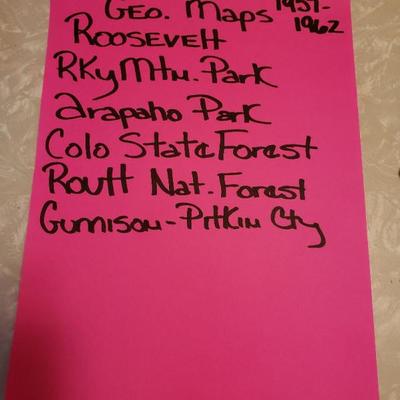 Geo. Maps 1957-
1962
Roosevelt
Rky Mtn. Park
Arapaho Park
Colo State Forest
Routt Nat. Forest
Gunnison-Pitkin Cty